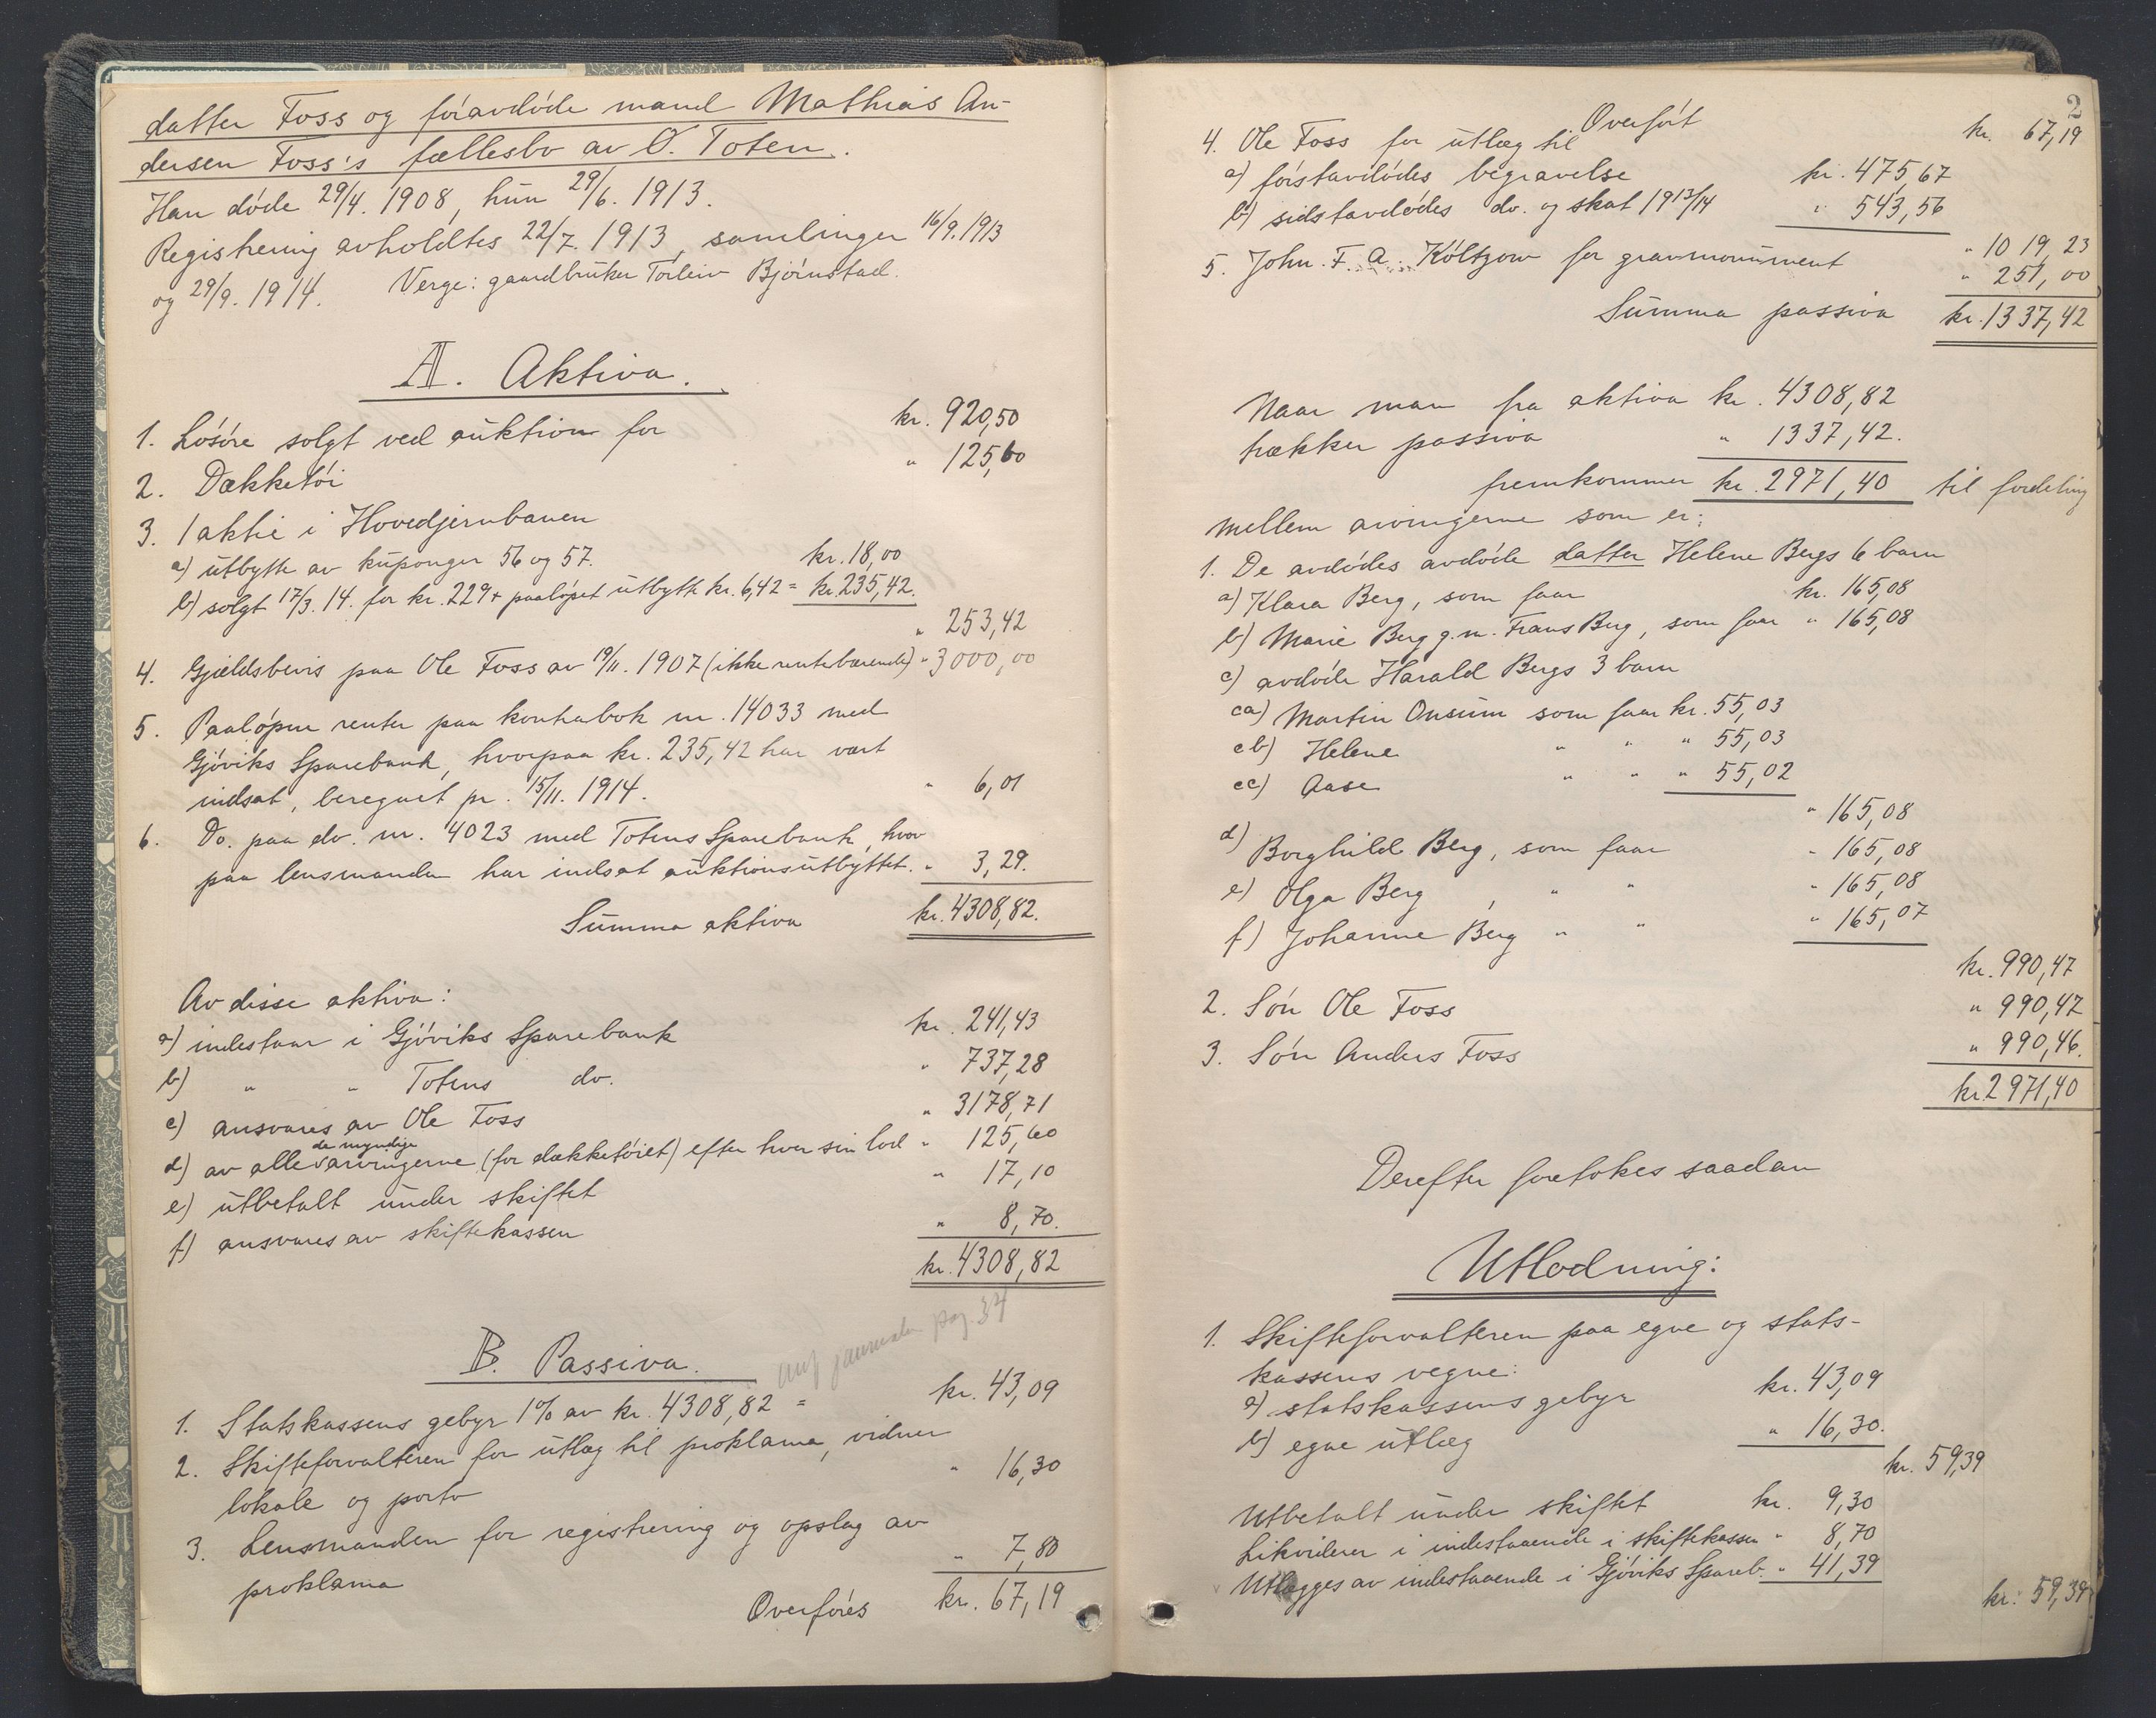 datter Foss og foravdøde mand Mathias An-
dersen Foss's fællesbo av Ø. Toten.
Han døde 29/4. 1908, hun 29/6. 1913.
Registrering avholdtes 22/7. 1913 samlinger 16/9. 1913
og 29/9. 1914. Verge: gaardbruker Torleiv Bjørnstad.
A. Aktiva.
1. Løsøre solgt ved auktion for kr. 920,50
2. Dækketøi " 125,60
3. 1 aktie i Hovedjernbanen
a) utbytte av kuponger 56 og 57. kr. 18,00
b) solgt 17/3. 14. for kr. 229 + paaløpet utbytte kr. 6,42 = kr. 235,42.
" 253,42
4. Gjældsbevis paa Ole Foss av 19/11. 1907 (ikke rentebærende) " 3000,00
5. Paaløpne renter paa kontrabok nr. 14033 med
Gjøviks Sparebank, hvorpaa kr. 235,42 har vært
indsat, beregnet pr. 15/11. 1914. " 6,01
6. Do. paa do. nr. 4023 med Totens Sparebank, hvor
paa lensmanden har indsat auktionsutbyttet. " 3,29.
Summa aktiva kr. 4308,82.
Av disse aktiva:
a) indestaar i Gjøviks Sparebank kr. 241,43
b) " " Totens do. " 737,28
c) ansvares av Ole Foss " 3178,71
de myndige
d) av alle arvingerne (for dækketøiet) efter hver sin lod " 125,60
e) utbetalt under skiftet " 17,10
f) ansvares av skiftekassen " 8,70.
kr. 4308,82
pag. 34
B. Passiva.
1. Statskassens gebyr 1% av kr. 4308,82 = kr. 43,09
2. Skifteforvalteren for utlæg til proklama, vidner
lokale og porto " 16,30
3. Lensmanden for registrering og opslag av
proklama " 7,80
Overføres kr. 67,19
2
Overført kr. 67,19
4. Ole Foss for utlæg til
a) førstavdødes begravelse kr. 475,67
b) sidstavdødes do. og skat 1913/14 " 543,56
" 1019,23
5. John. F. A. Køltzow for gravmonument " 251,00
Summa passiva kr. 1337,42
Naar man fra aktiva kr. 4308,82
trækker passiva " 1337,42.
fremkommer kr. 2971,40 til fordeling
mellem arvingerne som er:
1. De avdødes avdøde datter Helene Bergs 6 barn
a) Klara Berg, som faar kr. 165,08
b) Marie Berg g. m. Frans Berg, som faar " 165,08
c) avdøde Harald Bergs 3 barn
ca) Martin Onsum som faar kr. 55,03
cb) Helene " " " 55,03
cc) Aase " " " 55,02
" 165,08
d) Borghild Berg, som faar " 165,08
e) Olga Berg, " " " 165,08
f) Johanne Berg " " " 165,07
kr. 990,47
2. Søn Ole Foss " 990,47
3. Søn Anders Foss " 990,46.
kr. 2971,40
Derefter foretokes saadan
Utlodning:
1. Skifteforvalteren paa egne og stats-
kassens vegne:
a) statskassens gebyr kr. 43,09
b) egne utlæg " 16,30.
kr. 59,39
Utbetalt under skiftet kr. 9,30
Likviderer i indestaaende i skiftekassen " 8,70
Utlægges av indestaaende i Gjøviks Spareb. " 41,39
kr. 59,39